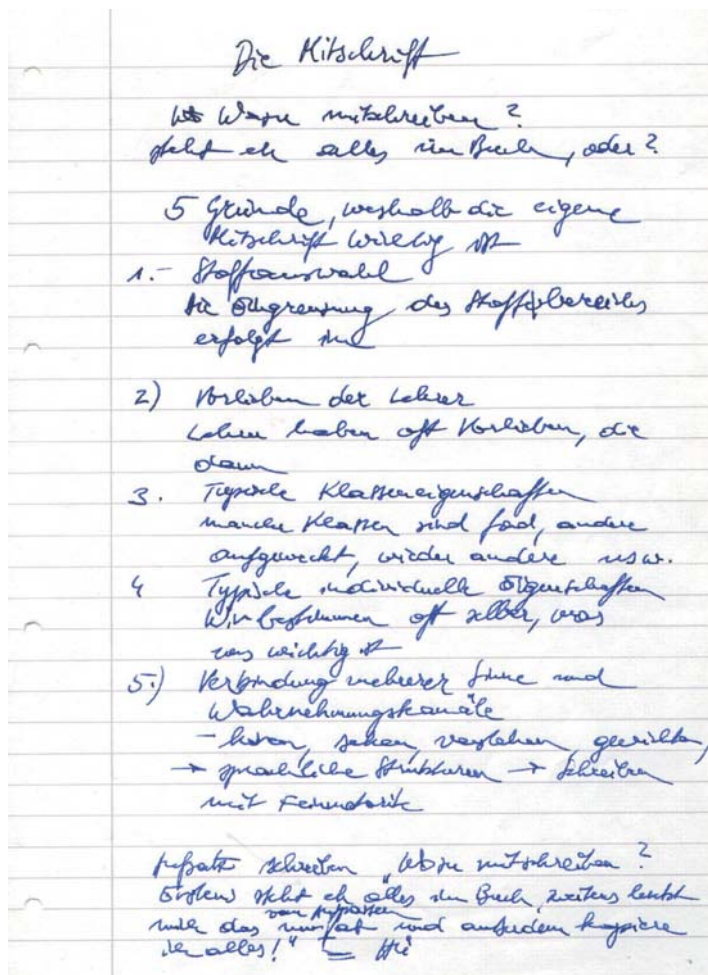 Die Mitschrift
Wozu mitschreiben?
steht eh alles im Buch, oder?
5 Gründe, weshalb die eigene
Mitschrift wichtig ist
1.- Stoffauswahl
Die Eingrenzung des Stoffbereiches
erfolgt im
2) Vorlieben der Lehrer
Lehrer haben oft Vorlieben, die
dann
3. Typische Klasseneigenschaften
manche Klassen sind fad, andere
aufgeweckt, wieder andere usw.
4 Typische individuelle Eigenschaften
Wir bestimmen oft selber, was
uns wichtig ist
5.) Verbindung mehrerer Sinne und
Wahrnehmungskanäle
- hören, sehen, verstehen, gewichten,
→ sprachliche Strukturen → Schreiben
mit Feinmotorik
schreiben "Wozu mitschreiben?
Erstens steht eh alles im Buch, zweitens
mich das und außerdem kapiere
ich alles!"